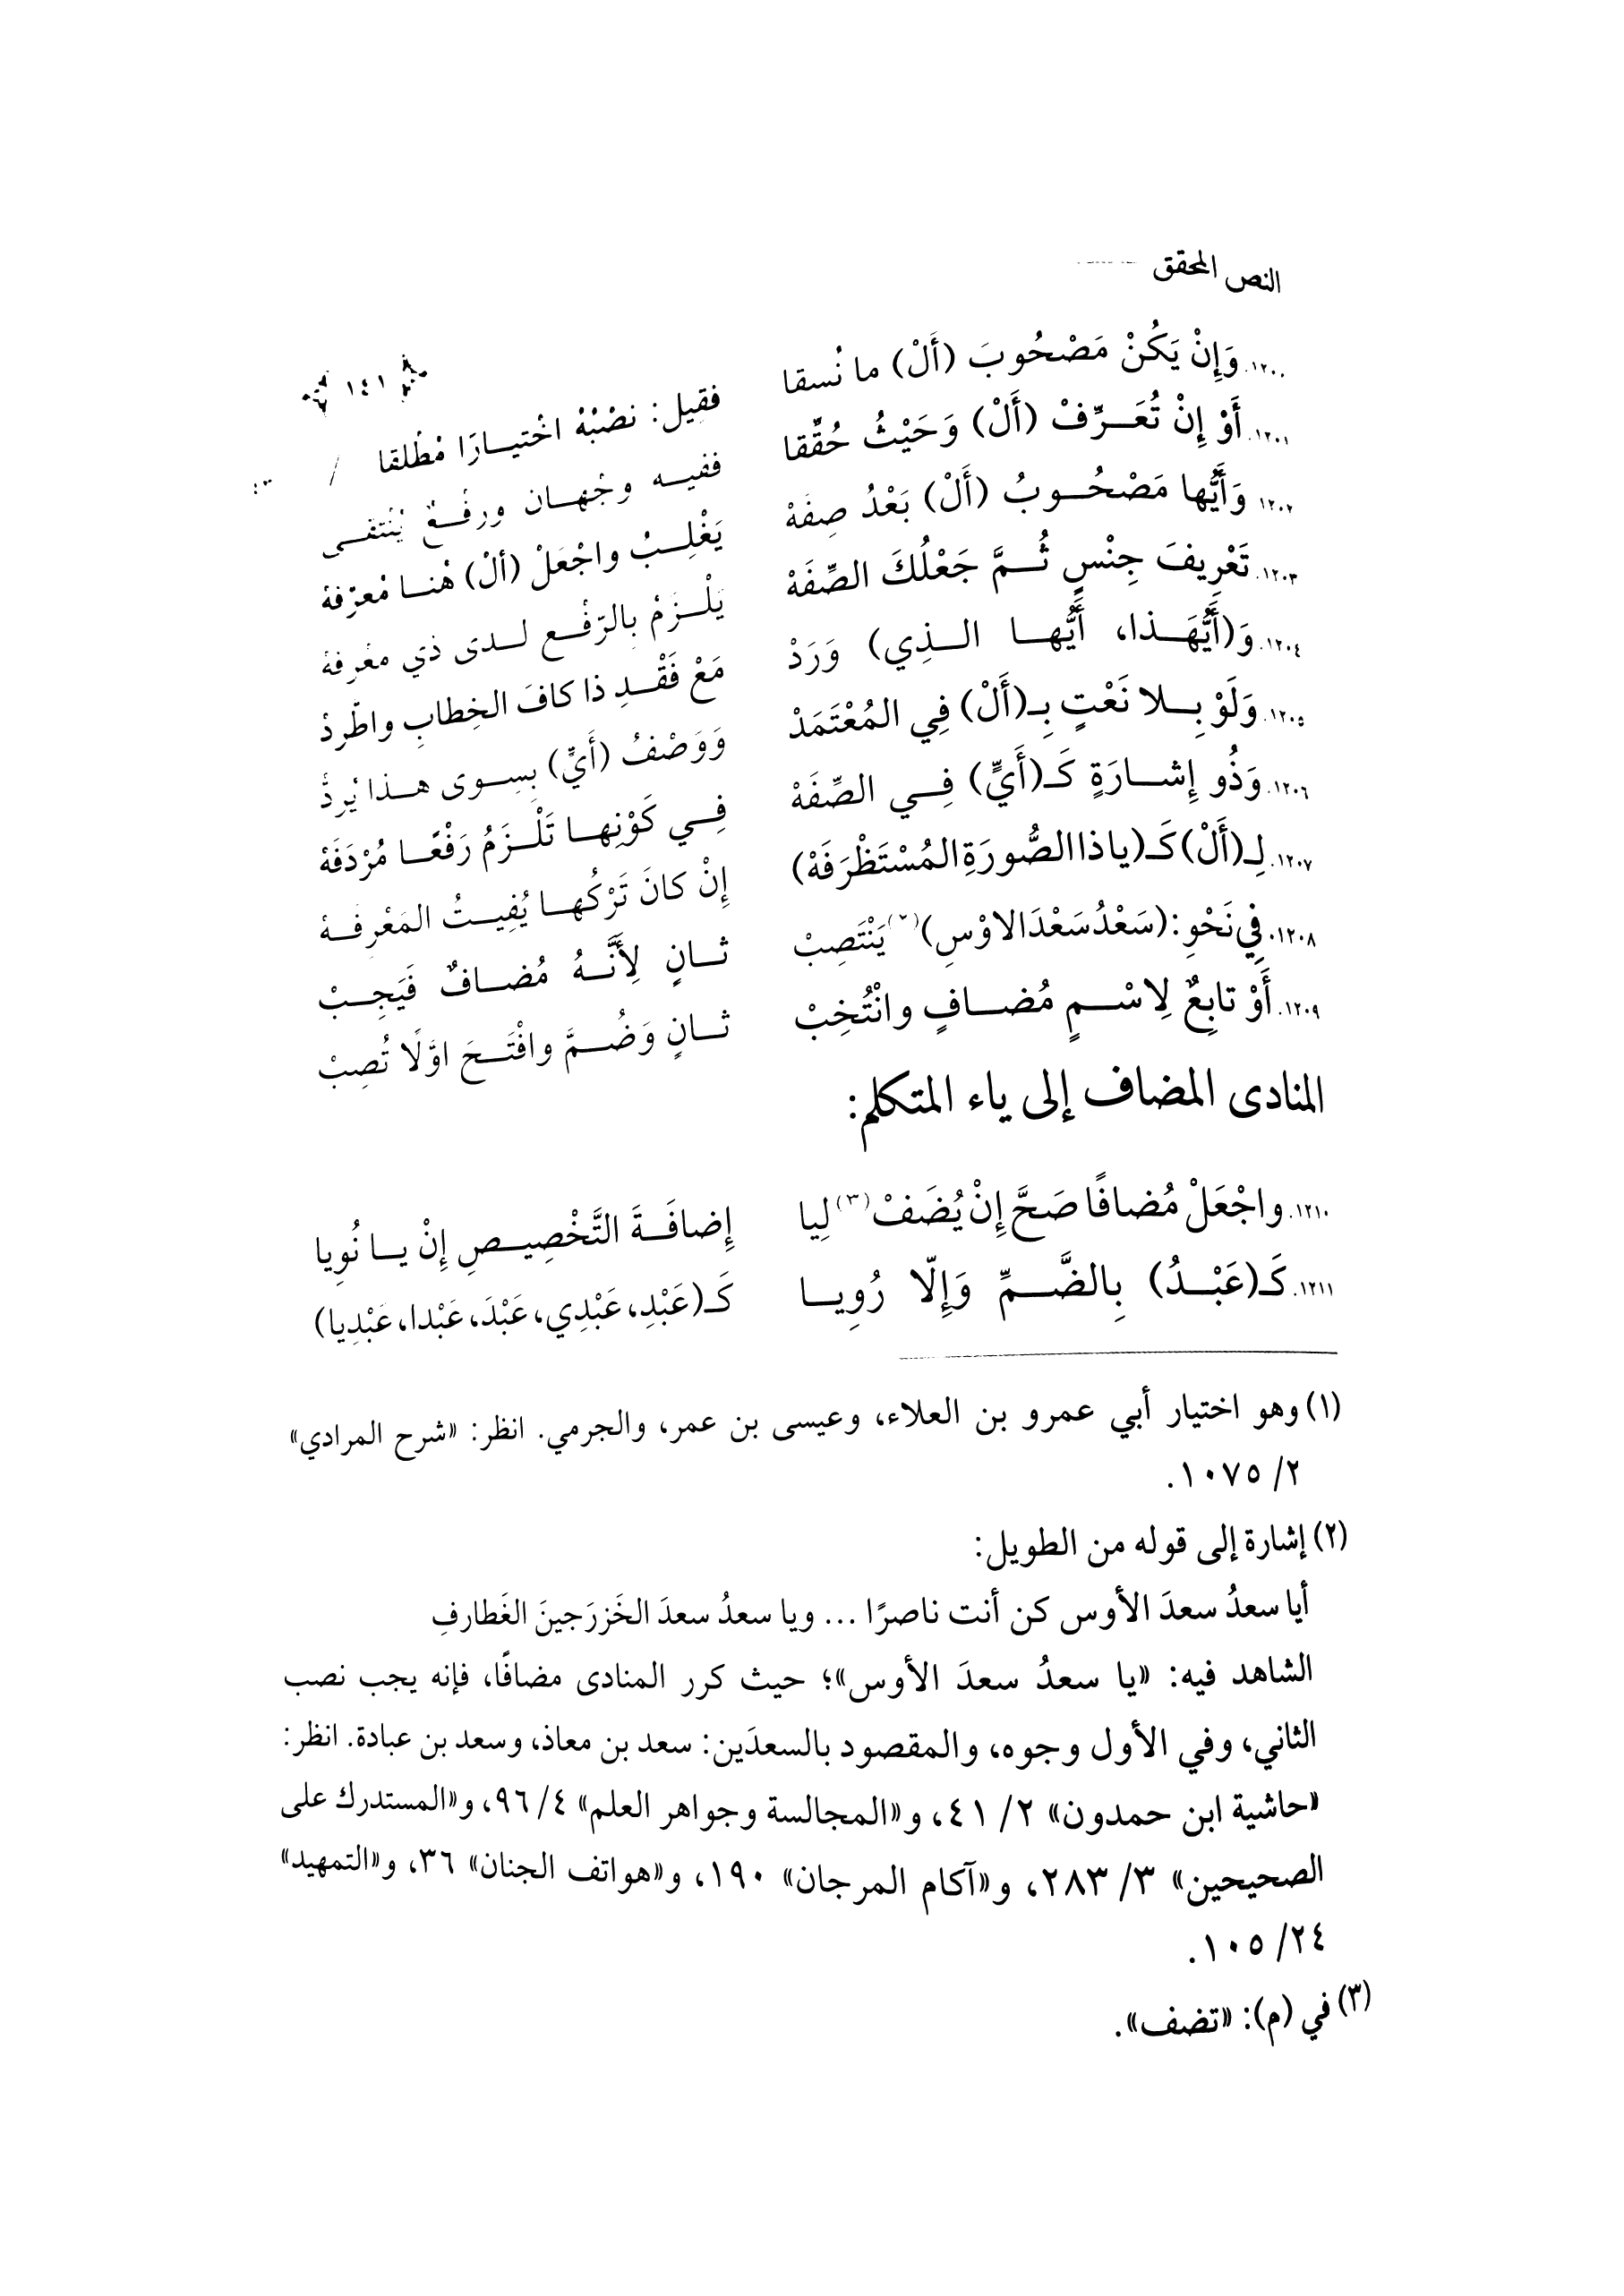 النص المحقق
١٤١
١٢٠٠. وَإِنْ يَكُنْ مَصْحُوبَ (أَلْ) ما نُسقا فقِيل: نصْبُهُ اخْتيـارًا مْطْلقا
١٢٠١. أَوْ إِنْ تُعَـرِّفْ (أَلْ) وَحَيْثُ حُقِّقا ففيـه وجْهـان ورفْـعٌ يُنتقـى
١٢٠٢. وَأَيُّها مَصْحُـوبُ (أَلْ) بَعْدُ صِفَهْ يَغْلِـبُ واجْعَلْ (ألْ) هُنـا مُعرِّفهْ
١٢٠٣. تَعْرِيفَ جِنْسٍ ثُـمَّ جَعْلُكَ الصِّفَهْ يَلْـزَمْ بِالرَّفْـعِ لـدى ذي معْرِفهْ
١٢٠٤. وَ(أَيُّهَـذا، أَيُّهـا الـذِي) وَرَدْ مَعْ فَقْـدِ ذا كافَ الخِطابِ واطّرِدْ
١٢٠٥. وَلَوْ بِـلا نَعْتٍ بِـ(أَلْ) فِي المُعْتَمَدْ وَوَصْفُ (أَيٍّ) بِسِـوى هـذا يُردّْ
١٢٠٦. وَذُو إِشـارَةٍ كَـ(أَيٍّ) فِـي الصِّفَهْ فِـي كَوْنِهـا تَلْـزَمُ رَفْعًـا مُرْدَفَهْ
١٢٠٧. لِـ(أَلْ) كَـ(ياذا الصُّورَةِ المُسْتَظْرَفَهْ) إِنْ كانَ تَرْكُهـا يُفِيـتُ المَعْرِفـهْ
١٢٠٨. فِي نَحْوِ: (سَعْدُ سَعْدَ الاوْسِ)(٢) يَنْتَصِبْ ثـانٍ لِأَنَّـهُ مُضـافٌ فَيَجِـبْ
١٢٠٩. أَوْ تابِعٌ لِاسْـمٍ مُضـافٍ وانْتُخِبْ ثـانٍ وَضُـمَّ وافْتَـحَ اوَّلًا تُصِبْ
المنادى المضاف إلى ياء المتكلم:
١٢١٠. واجْعَلْ مُضافًا صَحَّ إِنْ يُضَفْ(٣) لِيا إِضافَـةَ التَّخْصِيـصِ إِنْ يـا نُوِيا
١٢١١. كَـ(عَبْـدُ) بِالضَّـمِّ وَإِلّا رُوِيـا كَـ(عَبْدِ، عَبْدِي، عَبْدَ، عَبْدا، عَبْدِيا)
(١) وهو اختيار أبي عمرو بن العلاء، وعيسى بن عمر، والجرمي. انظر: «شرح المرادي»
٢/ ١٠٧٥.
(٢) إشارة إلى قوله من الطويل:
أيا سعدُ سعدَ الأوس كن أنت ناصرًا ... ويا سعدُ سعدَ الخَزرَجينَ الغَطارفِ
الشاهد فيه: «يا سعدُ سعدَ الأوس»؛ حيث كرر المنادى مضافًا، فإنه يجب نصب
الثاني، وفي الأول وجوه، والمقصود بالسعدَين: سعد بن معاذ، وسعد بن عبادة. انظر:
«حاشية ابن حمدون» ٢/ ٤١، و«المجالسة وجواهر العلم» ٤/ ٩٦، و«المستدرك على
الصحيحين» ٣/ ٢٨٣، و«آكام المرجان» ١٩٠، و«هواتف الجنان» ٣٦، و«التمهيد»
٢٤/ ١٠٥.
(٣) في (م): «تضف».